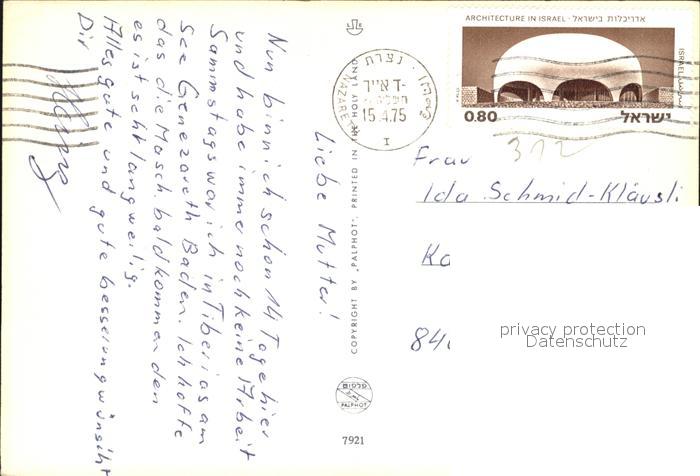 Liebe Mutter!
Nun bin nich schon 14 Tage hier
und habe immer noch keine Arbeit
Sammstags war ich in Tiberias am
See Genezareth Baden. Ich hoffe
das die Masch. bald kommen den
es ist sehr langweilig.
Alles gute und gute besserung wünscht
Dir
COPYRIGHT BY „PALPHOT", PRINTED IN THE HOLY LAND
PALPHOT
7921
נצרת
NAZARE
15.4.75
I
ARCHITECTURE IN ISRAEL · אדריכלות בישראל
ISRAEL
0.80
ישראל
312
Frau
Ida Schmid-Kläusli
Ko
84
privacy protection
Datenschutz